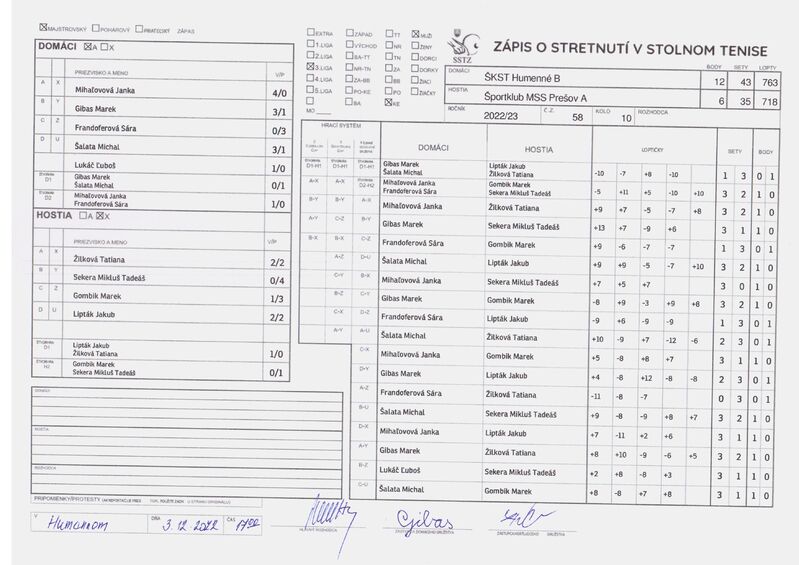 MAJSTROVSKÝ POHAROVÝ PRIATEĽSKÝ ZÁPAS
DOMÁCI A X
PRIEZVISKO A MENO V/P
A X Mihaľovová Janka 4/0
B Y Gibas Marek 3/1
C Z Frandoferová Sára 0/3
D U Šalata Michal 3/1
Lukáč Ľuboš 1/0
ŠTVORHRA D1 Gibas Marek
Šalata Michal 0/1
ŠTVORHRA D2 Mihaľovová Janka
Frandoferová Sára 1/0
HOSTIA A X
PRIEZVISKO A MENO V/P
A X Žilková Tatiana 2/2
B Y Sekera Mikluš Tadeáš 0/4
C Z Gombik Marek 1/3
D U Lipták Jakub 2/2
ŠTVORHRA Lipták Jakub
Žilková Tatiana 1/0
ŠTVORHRA H2 Gombik Marek
Sekera Mikluš Tadeáš 0/1
DOMÁCI
HOSTIA
ROZHODCA
PRIPOMIENKY/PROTESTY
V Humennom DŇA 3.12.2022 ČAS
EXTRA ZÁPAD TT MUŽI
1.LIGA VÝCHOD NR ŽENY
2.LIGA BA-TT TN DORCI
3.LIGA NR-TN ZA DORKY
4.LIGA ZA-BB BB ŽIACI
5.LIGA PO-KE PO ŽIAČKY
BA KE
MO
SSTZ
ZÁPIS O STRETNUTÍ V STOLNOM TENISE
BODY SETY LOPTY
DOMÁCI ŠKST Humenné B 12 43 763
HOSTIA Športklub MSS Prešov A 6 35 718
ROČNÍK 2022/23 Č.Z. 58 KOLO 10 ROZHODCA
HRACÍ SYSTÉM
DOMÁCI HOSTIA LOPTIČKY SETY BODY
ŠTVORHRA D1-H1 ŠTVORHRA D1-H1 ŠTVORHRA D1-H1 Gibas Marek Lipták Jakub
Šalata Michal Žilková Tatiana -10 -7 +8 -10 1 3 0 1
A-X A-X ŠTVORHRA D2-H2 Mihaľovová Janka Gombik Marek
Frandoferová Sára Sekera Mikluš Tadeáš -5 +11 +5 -10 +10 3 2 1 0
B-Y B-Y A-X Mihaľovová Janka Žilková Tatiana +9 +7 -5 -7 +8 3 2 1 0
A-Y C-Z B-Y Gibas Marek Sekera Mikluš Tadeáš +13 +7 -9 +6 3 1 1 0
B-X B-X C-Z Frandoferová Sára Gombik Marek +9 -6 -7 -7 1 3 0 1
A-Z D-U Šalata Michal Lipták Jakub +9 +9 -5 -7 +10 3 2 1 0
C-Y B-X Mihaľovová Janka Sekera Mikluš Tadeáš +7 +5 +7 3 0 1 0
B-Z C-Y Gibas Marek Gombik Marek -8 +9 -3 +9 +8 3 2 1 0
C-X D-Z Frandoferová Sára Lipták Jakub -9 +6 -9 -9 1 3 0 1
A-Y A-U Šalata Michal Žilková Tatiana +10 -9 +7 -12 -6 2 3 0 1
C-X Mihaľovová Janka Gombik Marek +5 -8 +8 +7 3 1 1 0
D-Y Gibas Marek Lipták Jakub +4 -8 +12 -8 -8 2 3 0 1
A-Z Frandoferová Sára Žilková Tatiana -11 -8 -7 0 3 0 1
B-U Šalata Michal Sekera Mikluš Tadeáš +9 -8 -9 +8 +7 3 2 1 0
D-X Mihaľovová Janka Lipták Jakub +7 -11 +2 +6 3 1 1 0
A-Y Gibas Marek Žilková Tatiana +8 +10 -9 -6 +5 3 2 1 0
B-Z Lukáč Ľuboš Sekera Mikluš Tadeáš +2 +8 -8 +3 3 1 1 0
C-U Šalata Michal Gombik Marek +8 -8 +7 +8 3 1 1 0
HLAVNÝ ROZHODCA Gibas